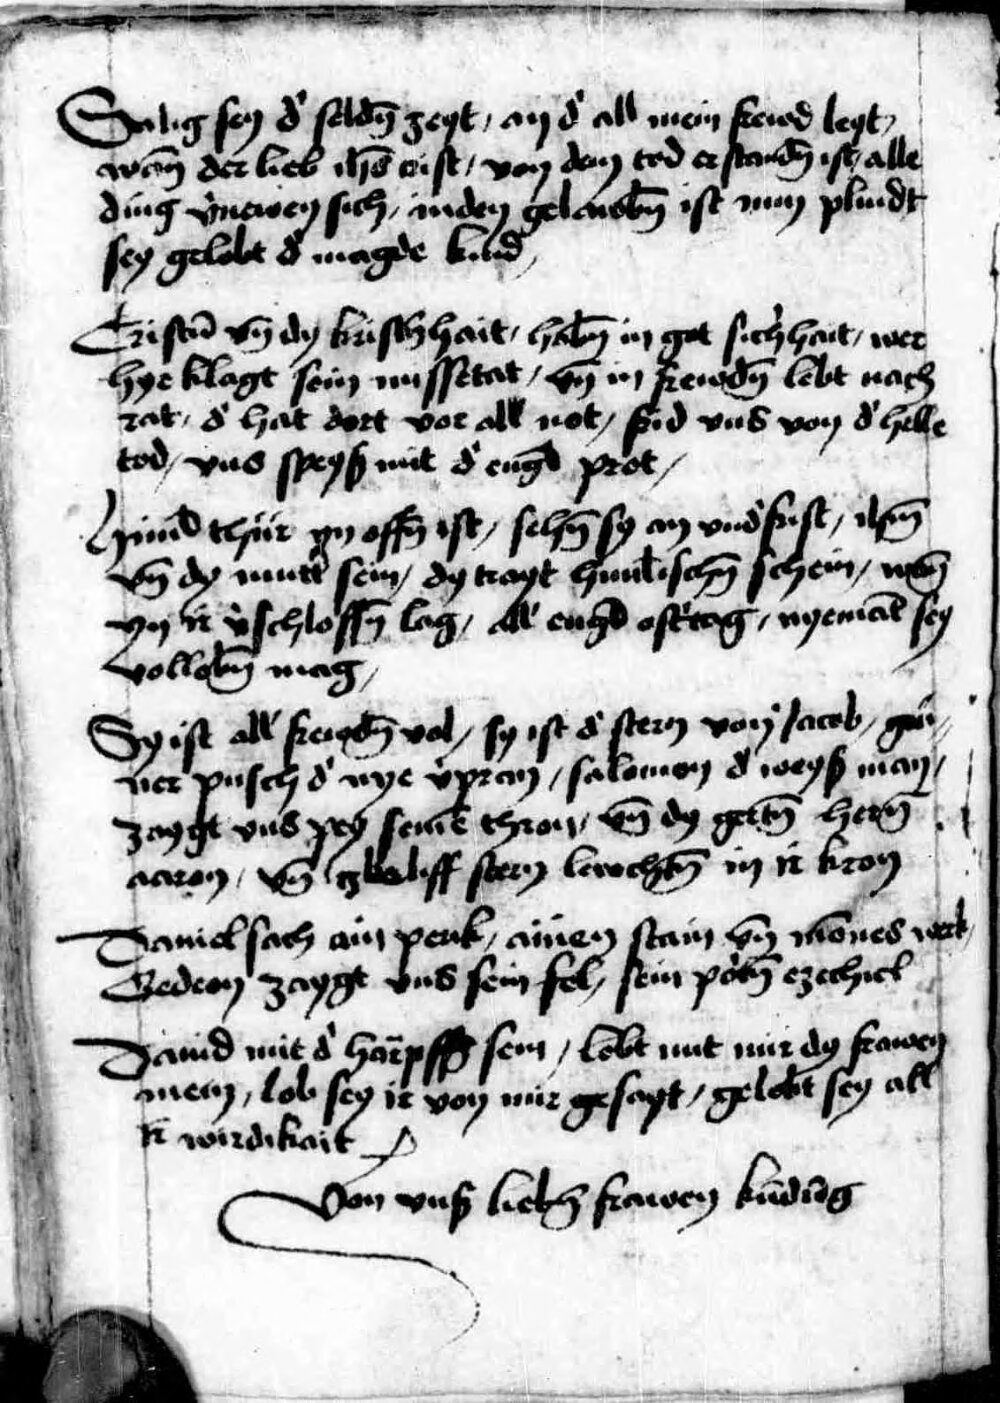 Salig sey d' seldn̄ zeyt / an d' all mein frewd leyt /
wan̄ der lieb ih̄s crist / von dem tod erstandn̄ ist / alle
ding v'newen sich / inden gelawbn̄ ist nun plindt
sey gelobt d' magde kind /
Cristū vn̄ dy kristn̄hait / habn̄ in got sich'hait / wer
hye klagt sein missetat / vn̄ in frewdn̄ lebt nach
rat / d' hat dort vor all not / frid vns von d' helle
tod / vns speyß mit d' engl̄ prot /
Himl̄ thür yn offn̄ ist / sehn̄ sy an vnd' frist /
vn̄ dy mutt' sein / dy trayt himl̄ischn̄ schein / wan̄
yn ir v'schlossn̄ lag / all' engl̄ ost'tag / nyemāt sey
vollobn̄ mag /
Sy ist all' frewdn̄ vol / sy ist d' stern von Jacob / grü-
ner pusch d' nye v'pran / salomon d' weyß man /
zaygt vns pey seinē thron / vn̄ dy gertn̄ hern̄
aaron / vn̄ zweliff stern lewchtn̄ in ir kron
Daniel sach ain perk / ainen stain vn̄ mones werk /
Gedeon zaygt vns sein fel / sein portn̄ ezechiel
Dauid mit d' harpffn̄ sein / lobt mit mir dy frawen
mein / lob sey ir von mir gesayt / gelobt sey all
ir wirdikait
Von vnß liebn̄ frawen kūdūg